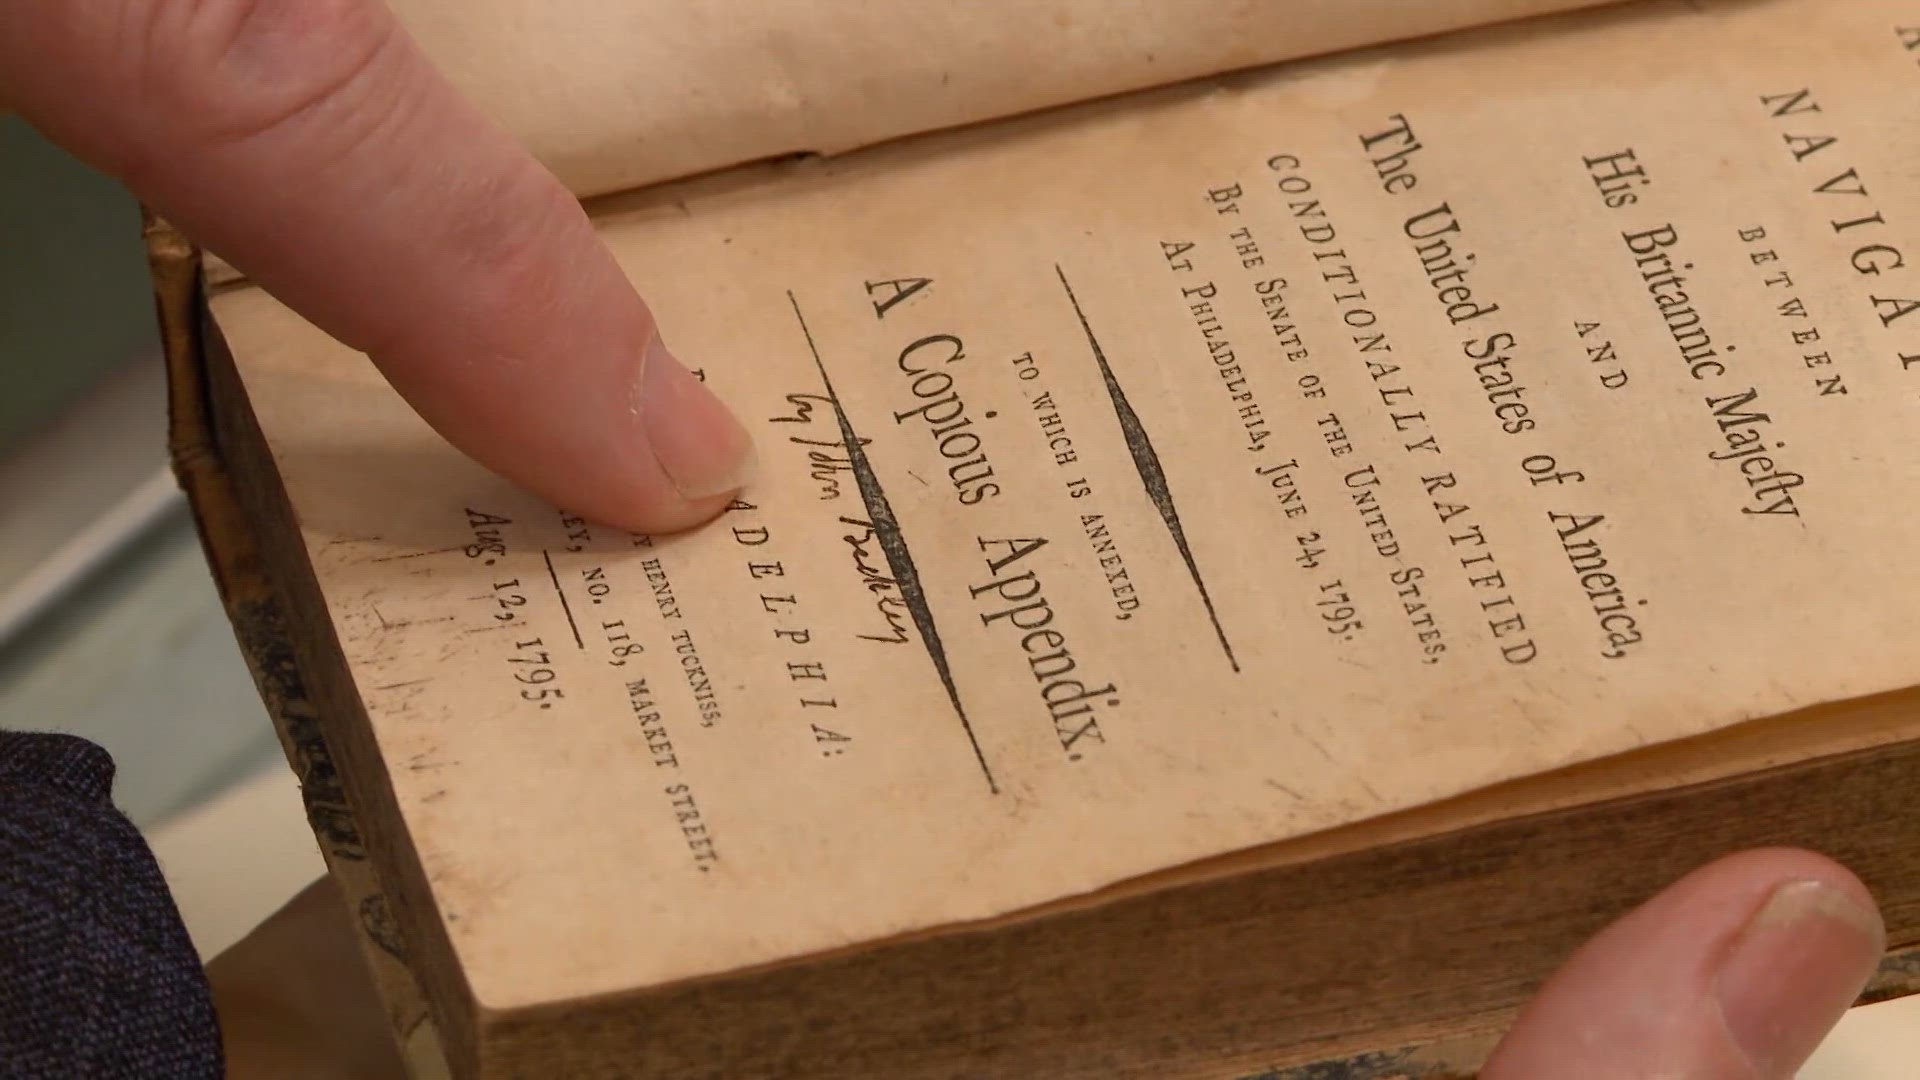 NAVIGAT
BETWEEN
His Britannic Majeſty
AND
The United States of America,
CONDITIONALLY RATIFIED
BY THE SENATE OF THE UNITED STATES,
AT PHILADELPHIA, JUNE 24, 1795:
TO WHICH IS ANNEXED,
A Copious Appendix.
by John Beckley
ADELPHIA:
Y HENRY TUCKNISS,
EY, NO. 118, MARKET STREET,
Aug. 12, 1795.